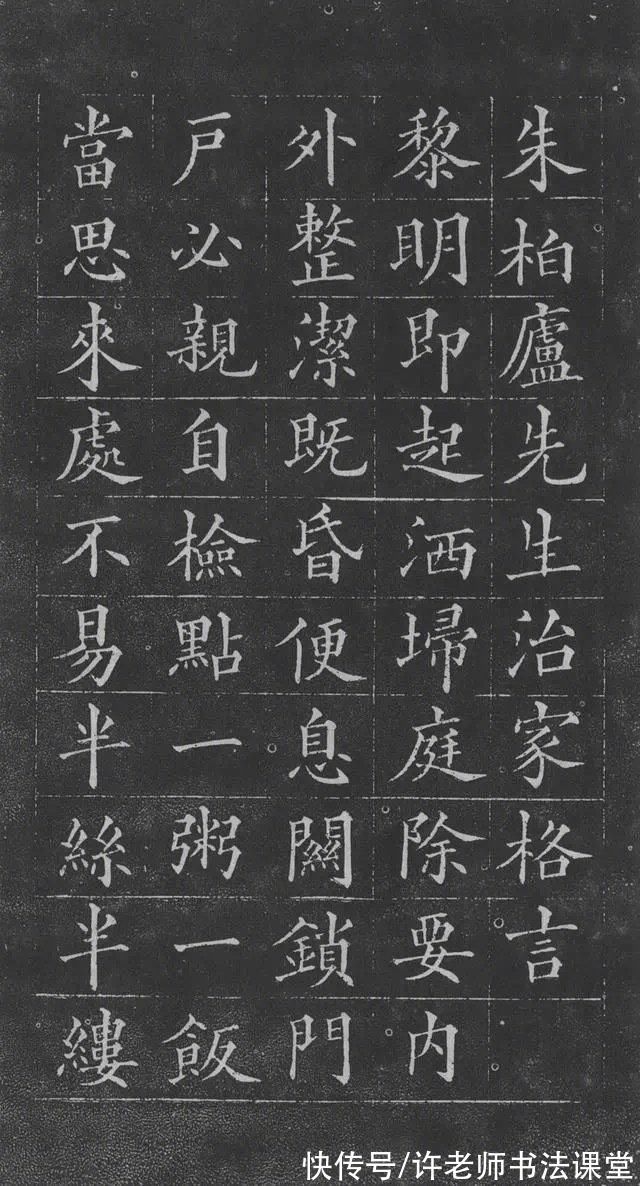 朱柏廬先生治家格言
黎明即起洒埽庭除要内
外整潔既昏便息關鎖門
戸必親自檢點一粥一飯
當思來處不易半絲半縷
快传号/许老师书法课堂